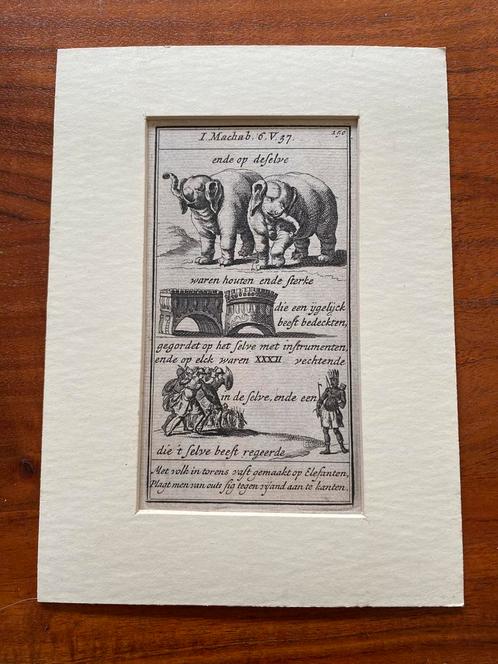 I. Machab. 6. V. 37.
250
ende op deselve
waren houten ende sterke
die een ygelijck
beest bedeckten,
gegordet op het selve met instrumenten,
ende op elck waren XXXII vechtende
in de selve, ende een
die 't selve beest regeerde
Met volk in torens vast gemaakt op Elefanten,
Plagt men van outs sig tegen vyand aan te kanten.